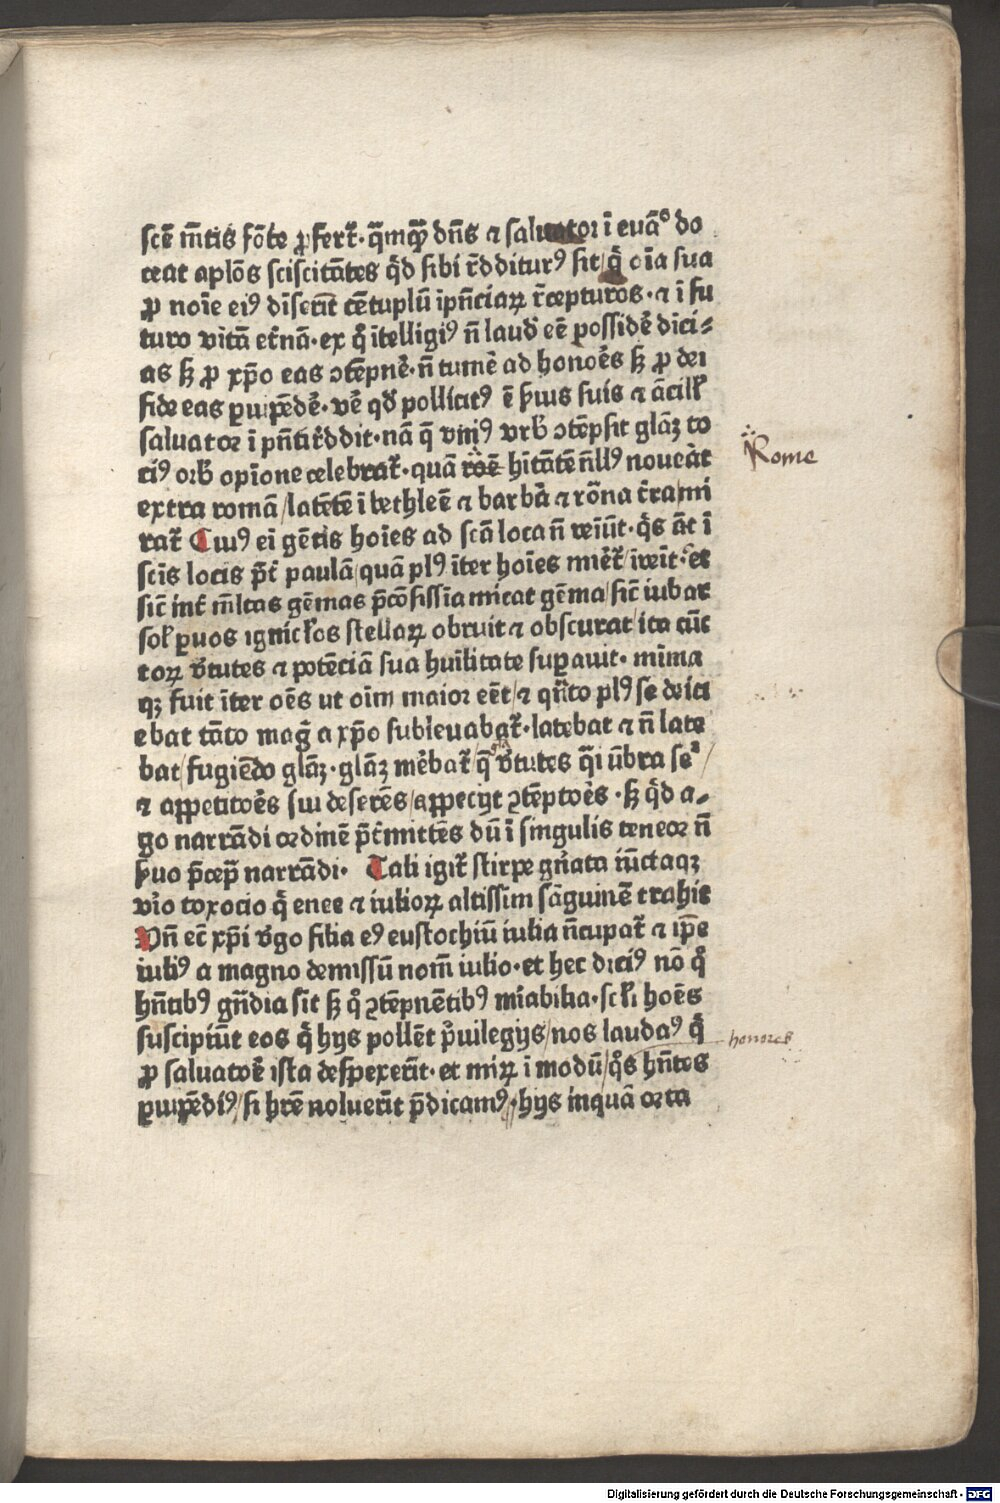 scē mētis fōte ꝓfert᷑·qūmqꝫ dn̄s ⁊ saluator ī euāº do
ceat aplōs sciscitātes qͥd sibi rͤdditurꝰ sit/qͥ oīa sua
ꝓ noīe eiꝰ dīserīt cētuplū īpn̄ciaꝝ rͤcepturos·⁊ ī fu
turo vitā et̄nā·ex qͦ ītelligiꝰ n̄ laudꝭ eē possidē dici⸗
as sꝫ ꝓ xp̄o eas ꝯtēpnē·n̄ tumē ad honoēs sꝫ ꝓ dei
fide eas ꝑuipēdē·vē qd̄ pollicitꝰ ē ẜuis suis ⁊ ācill̄
saluator ī pn̄ti rͤddit·nā q̄ vniꝰ vrbꝭ ꝯtēpsit glāꝫ to
ciꝰ orbꝭ opīone celebrat᷑·quā roē hītātē n̄llꝰ noueāt
extra romā/latētē ī bethleē ⁊ barbā ⁊ rōna t̄ra mi
rat᷑ Cuiꝰ ei gētis hoīes ad scā loca n̄ veiūt·qͥs āt ī
scīs locis p̄t̄ paulā/quā plꝰ īter hoīes mirēt᷑/īveīt·et
sic̄ int̄ ml̄tas gēmas p̄cōsissīa micat gēma/sic̄ iubar
sol̄ ꝑuos ignicl̄os stellaꝝ obruit ⁊ obscurat/ita cūc
toꝝ v̄tutes ⁊ potēciā sua huīlitate suꝑauit·mīma
qꝫ fuit īter oēs ut oīm maior eēt/⁊ qn̄to plꝰ se deici
ebat tāto magꝭ a xp̄o subleuabat᷑·latebat ⁊ n̄ late
bat/fugiēdo glāꝫ·glāꝫ mēbat᷑/q̄ v̄tutes qͣi ūbra seͬ/
⁊ appetitoēs sui deserēs/appecijt ꝯtēptoēs·sꝫ qͥd a⸗
go narrādi ordinē p̄t̄mittēs dū ī singulis teneor n̄
ẜuo p̄cep̄ narrādi· Tali igit᷑ stirpe gn̄ata iūctaqꝫ
vīo toxocio qͥ enee ⁊ iulioꝝ altissim sāguinē trahit
Vn̄ ec̄ xp̄i v̄go filia eꝰ eustochiū iulia n̄cupat᷑ ⁊ ip̄e
iuliꝰ a magno demissū nom̄ iulio·et hec diciꝰ nō qͦ
hn̄tibꝰ gn̄dia sīt sꝫ qͦ ꝯtēpnētibꝰ mīabilia·scl̄i hoēs
suscipiūt eos qͥ hys pollēt pͥuilegijs/nos laudaꝰ qͥ
ꝓ saluatoē ista despexerīt·et miꝝ ī modū/qͦs hn̄tes
ꝑuipēdiꝰ/si hr̄e noluerīt p̄dicamꝰ·hys inquā orta
Rome
honores
Digitalisierung gefördert durch die Deutsche Forschungsgemeinschaft - DFG